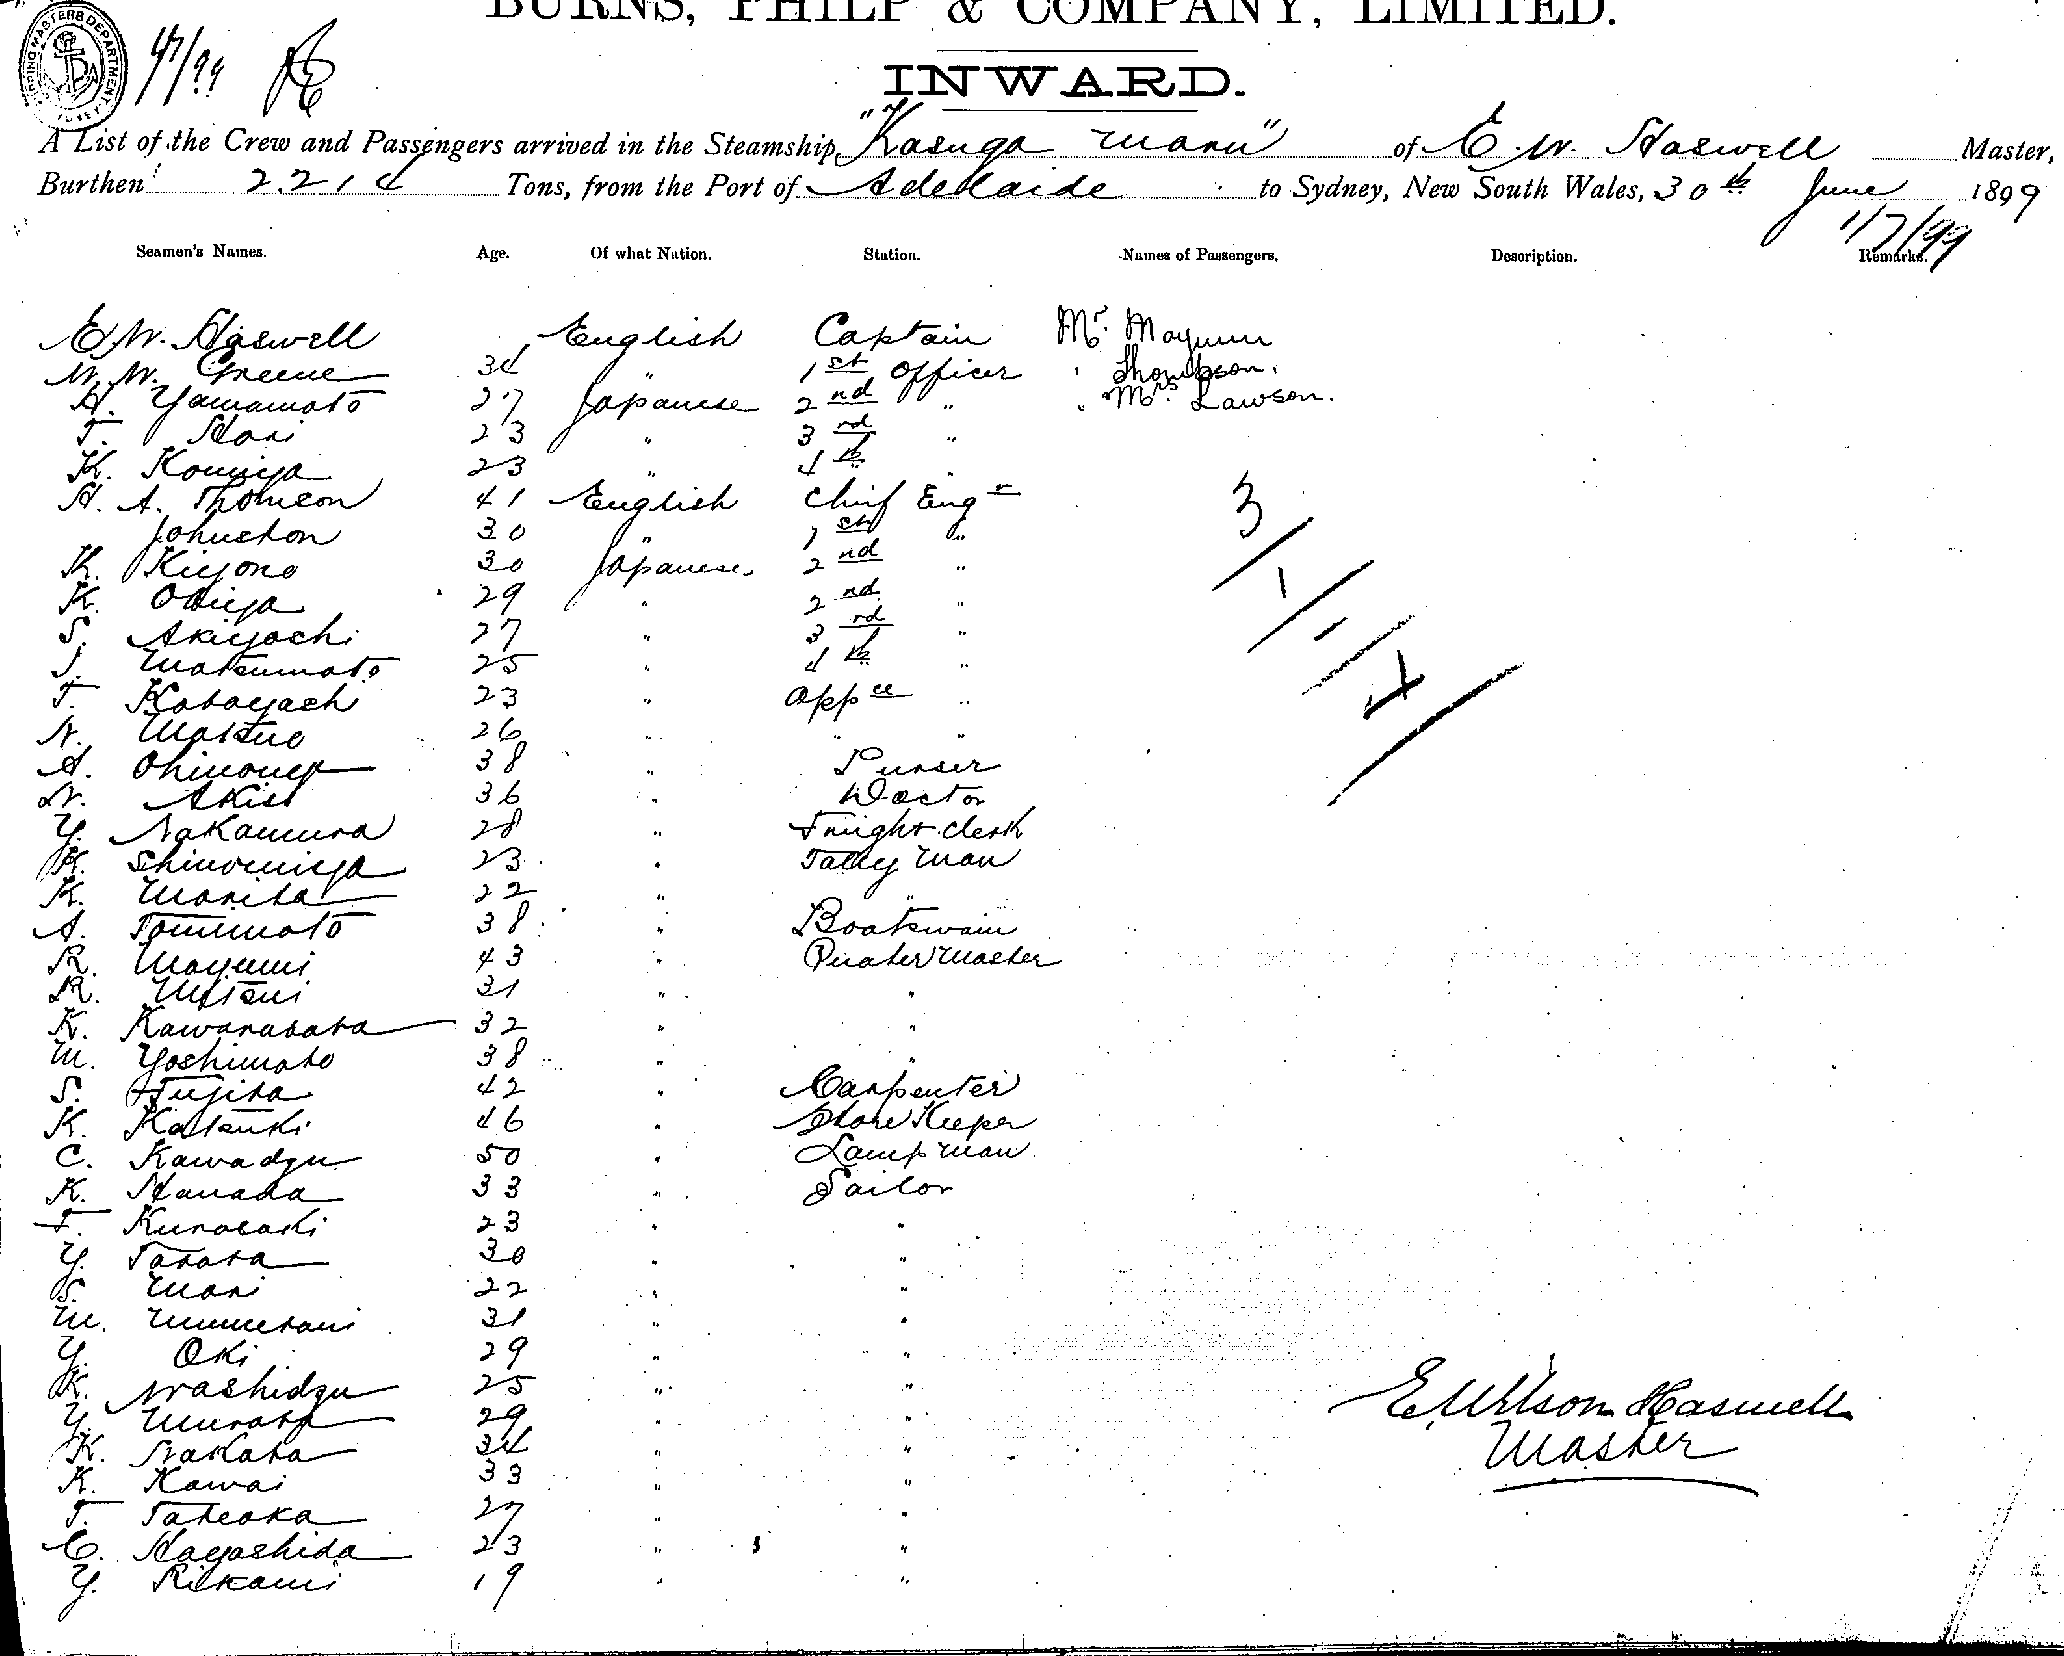 BURNS, PHILP & COMPANY, LIMITED.
47/99
INWARD.
A List of the Crew and Passengers arrived in the Steamship, "Kasuga Maru" of E. W. Haswell Master,
Burthen 2214 Tons, from the Port of Adelaide to Sydney, New South Wales, 30th June 1899
1/7/99
Seamen's Names. Age. Of what Nation. Station. Names of Passengers. Description. Remarks.
E. W. Haswell English Captain Mr. Mayumi
W. W. Greene 34 " 1st Officer " Thompson.
H. Yamamoto 27 Japanese 2nd " " Mrs Lawson.
T. Hori 23 " 3rd "
K. Komiya 23 " 4th "
H. A. Thomson 41 English Chief Engr
Johnston 30 " 1st "
K. Kiyono 30 Japanese 2nd "
K. Obiya 29 " 2nd "
S. Akiyochi 27 " 3rd "
J. Matsumoto 25 " 4th "
T. Kobayachi 23 " Appce "
N. Matsuo 26 " " "
A. 38 " Purser
N. 36 " Doctor
Y. Nakamura 28 " Freight Clerk
K. Shinomiya 23 " Tally Man
K. Morita 22 " "
A. Tomimoto 38 " Boatswain
R. Mayumi 43 " Quater Master
R. Mitsui 31 " "
K. Kawarabata 32 " "
M. Yoshimoto 38 " "
S. Fujita 42 " Carpenter
K. Katsuki 46 " Store Keeper
C. Kawadzu 50 " Lamp man
K. Hanada 33 " Sailor
T. Kurosaki 23 " "
Y. Tabata 30 " "
S. Mori 22 " "
M. 31 " "
Y. Oki 29 " "
K. Washidzu 25 " "
Y. Murata 29 " "
K. Nakata 34 " "
K. Kawai 33 " "
T. Tateoka 27 " "
C. Hayashida 23 " "
Y. Rikami 19 " "
3/1/1/4/
E. Wilson Haswell
Master